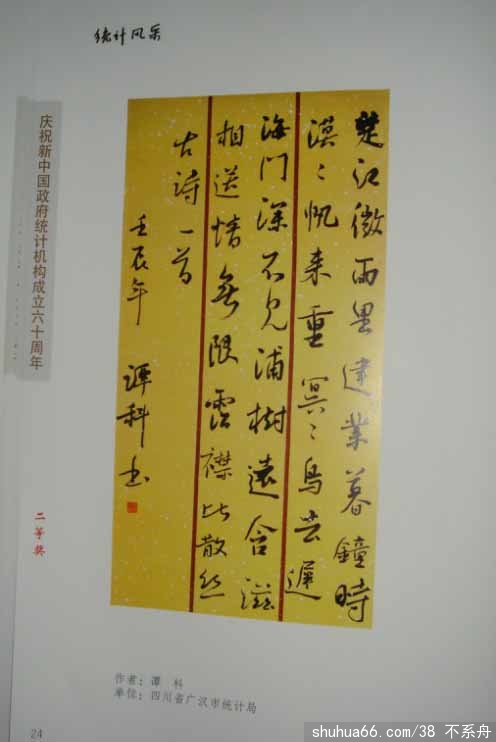 统计风采
庆祝新中国政府统计机构成立六十周年
楚江微雨里建業暮鐘時
漠々帆来重冥々鸟去遲
海门深不见浦樹遠含滋
相送情無限霑襟比散丝
古詩一首
壬辰年 谭科书
二等奖
作者：谭 科
单位：四川省广汉市统计局
24
shuhua66.com/38 不系舟